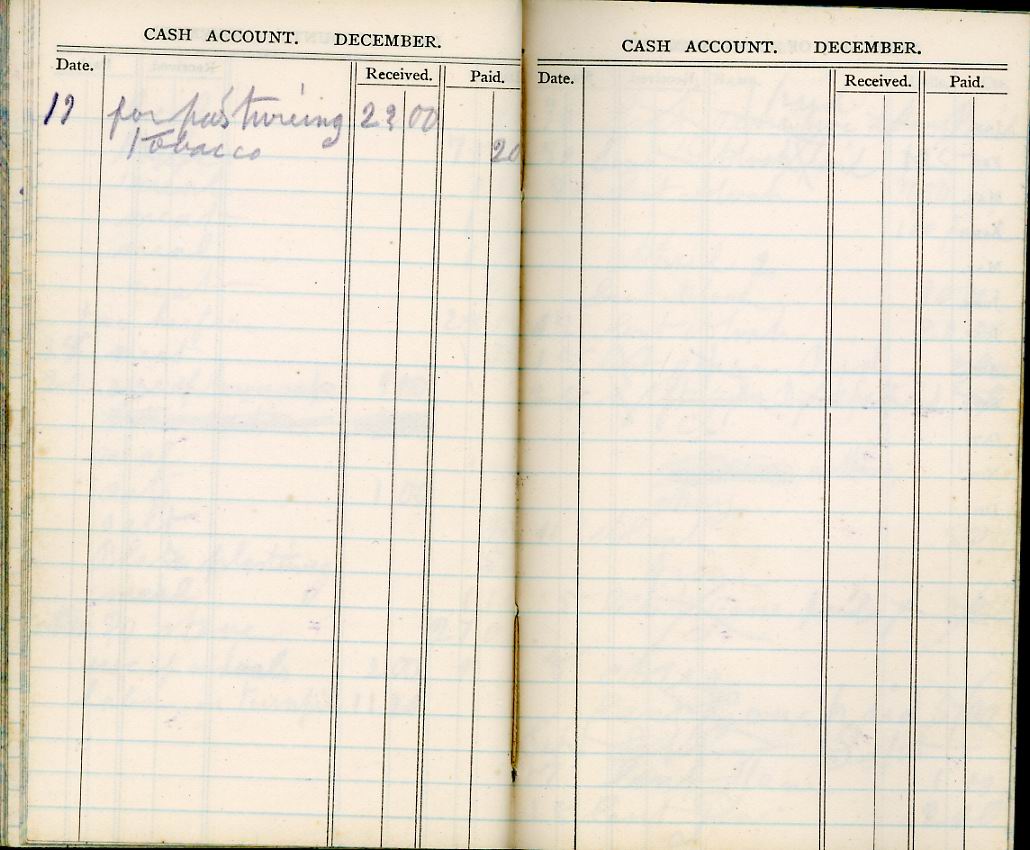 CASH ACCOUNT. DECEMBER.
Date. Received. Paid.
for pastureing 00
Tobacco 20
CASH ACCOUNT. DECEMBER.
Date. Received. Paid.